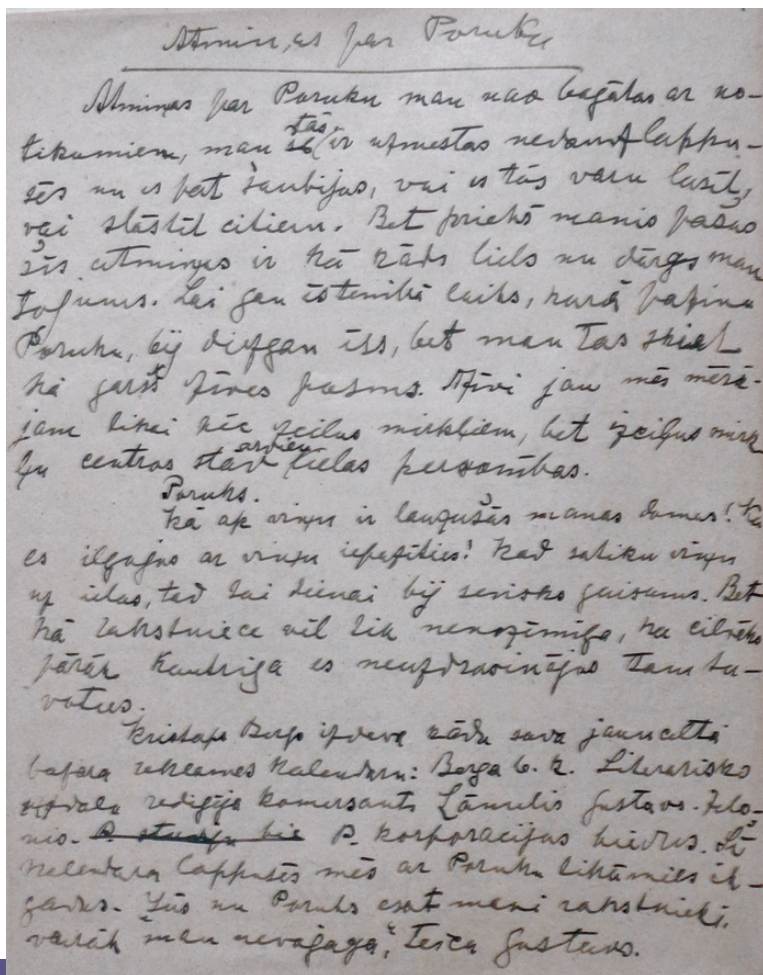 Atmiņas par Poruku
Atmiņas par Poruku man nav bagātas ar no-
tikumiem, man tās ir uzmestas nedaudz lappu-
sēs un es pat šaubījos, vai es tās varu lasīt,
vai stāstīt citiem. Bet priekš manis pašas
šīs atmiņas ir kā kāds liels un dārgs man
Lai gan īstenībā laiks, kurā pazinu
Poruku, bij diezgan īss, bet man tas šķiet
kā garš dzīves posms. Dzīvi jau mēs mērī-
jam tikai pēc zeiļus mirkļiem, bet izciļus mirk
ļu centros stāv arvien lielas personības.
Poruks.
Kā ap viņu ir lauzušās manas domas! Kā
es ilgojos ar viņu iepazīties! Kad satiku viņu
uz ielas, tad tai dienai bij sevišķs gaišums. Bet
kā rakstniece vēl tik nenozīmīga, kā cilvēks
pārāk kautrīga es neuzdrošinājos tam tu-
voties.
Kristaps Bergs izdeva kādu sava jaunceltā
bazara reklāmes kalendaru: Berga b. k. Literarisko
nodaļu rediģēja komersants Gustavs Zelo-
nis. P. korporācijas biedrs. Šī
kalendara lappusēs mēs ar Poruku tikāmies ik-
gadus. Jūs un Poruks esat mani rakstnieki,
vairāk man nevajaga", teica Gustavs.